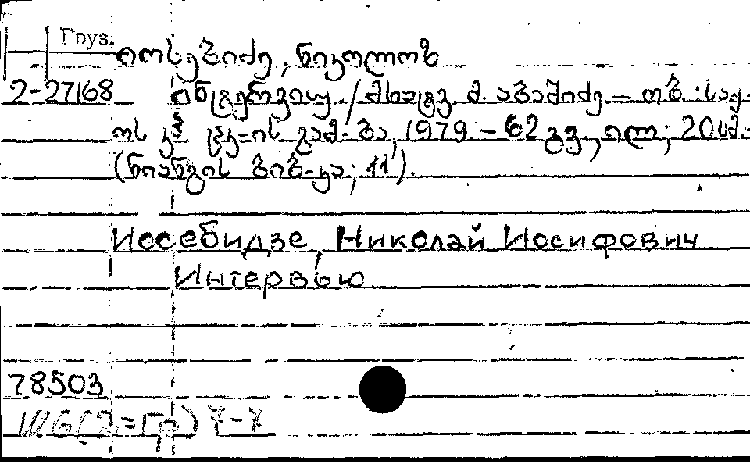 Груз.
იოსებიძე, ნიკოლოზ
2-27168 ინტერვიუ / მხატვ. მ. აბაშიძე. — თბ.: საქ.
კპ ცკ-ის გამ-ბა, 1979. — 62 გვ., ილ.; 20 სმ. —
(ნიანგის ბიბ-კა; 11).
Иосебидзе, Николай Иосифович
Интервью
78503
Ш6(2=Гр) 7-7